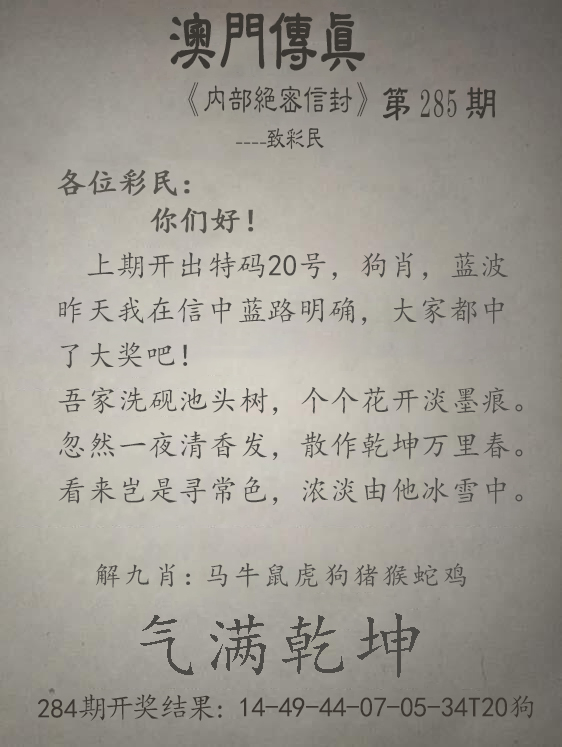 澳門傳眞
《内部絕密信封》第285期
----致彩民
各位彩民：
你们好！
上期开出特码20号，狗肖，蓝波
昨天我在信中蓝路明确，大家都中
了大奖吧！
吾家洗砚池头树，个个花开淡墨痕。
忽然一夜清香发，散作乾坤万里春。
看来岂是寻常色，浓淡由他冰雪中。
解九肖：马牛鼠虎狗猪猴蛇鸡
气满乾坤
284期开奖结果：14-49-44-07-05-34T20狗